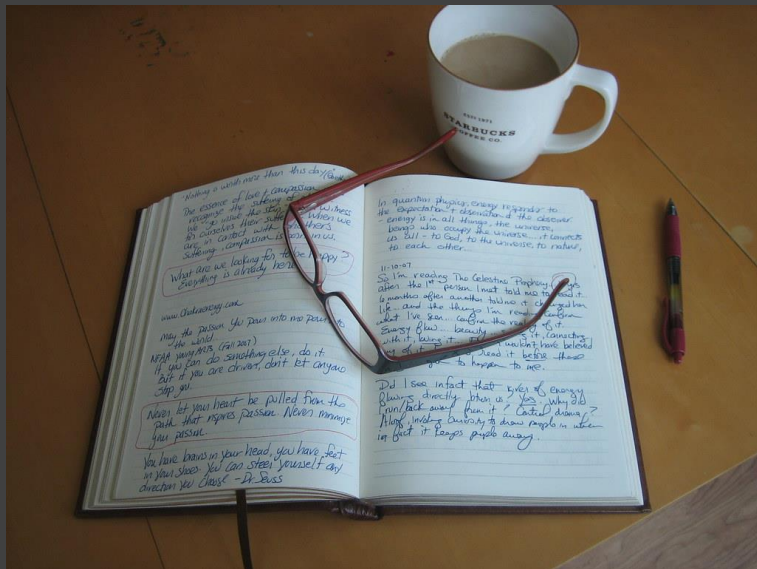 "Nothing is worth more than this day"
The essence of love & compassion
recognize the suffering of
we witness
for ourselves their suffering when we
are in contact with others
suffering, compassion is born in us.
What are we looking for to be happy?
Everything is already here
May the passion you pour into me pour
the world
If you can do something else, do it
But if you are driven, don't let anyone
stop you.
Never let your heart be pulled from the
path that inspires passion. Never minimize
your passion.
You have brains in your head, you have feet
in your shoes. You can steer yourself any
direction you choose - Dr. Seuss
In quantum physics, energy responds to
the expectation & observation of the observer
- energy is in all things, the universe,
beings who occupy the universe. it connects
us all - to God, to the universe, to nature,
to each other.
11-10-07
So I'm reading The Celestine Prophecy.
after the 1st person I met told me to read it.
6 months after another told me it changed him
life. and the things I'm reading confirm
what I've seen. confirm the reality of it.
Energy flow. beauty it, connecting
with it, I wouldn't have believed
read it before these
to happen to me.
Did I see in fact that rivers of energy
flowing directly btwn us? Yes. Why did
I run/back away from it? Control drama?
Aloof, inviting curiosity to draw people in when
in fact it keeps people away.
ESTD 1971
STARBUCKS
COFFEE CO.